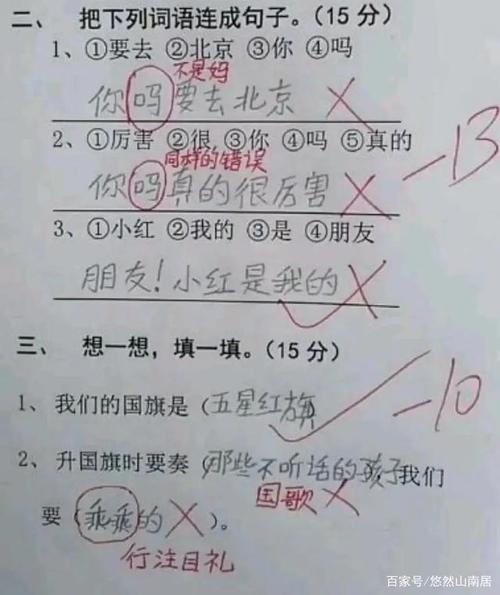 二、 把下列词语连成句子。(15分)
1、①要去 ②北京 ③你 ④吗
不是妈
你吗要去北京
2、①厉害 ②很 ③你 ④吗 ⑤真的
同样的错误
你吗真的很厉害
-13
3、①小红 ②我的 ③是 ④朋友
朋友!小红是我的
三、 想一想,填一填。(15分)
1、我们的国旗是(五星红旗
-10
2、升国旗时要奏(那些不听话的孩子我们
国歌
要(乖乖的)。
行注目礼
百家号/悠然山南居